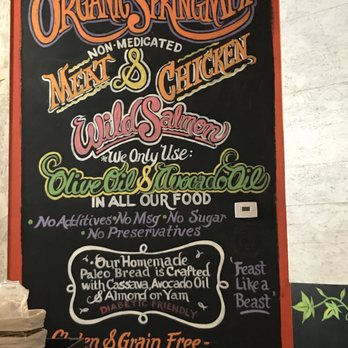 ORGANIC SPRINGMIX
NON-MEDICATED
MEAT & CHICKEN
Wild Salmon
We Only Use:
Olive Oil & Avocado Oil
IN ALL OUR FOOD
• No Additives • No Msg • No Sugar
• No Preservatives
Our Homemade
Paleo Bread is Crafted
with Cassava, Avocado Oil
& Almond or Yam
DIABETIC FRIENDLY
'Feast
Like a
Beast'
Gluten & Grain Free -